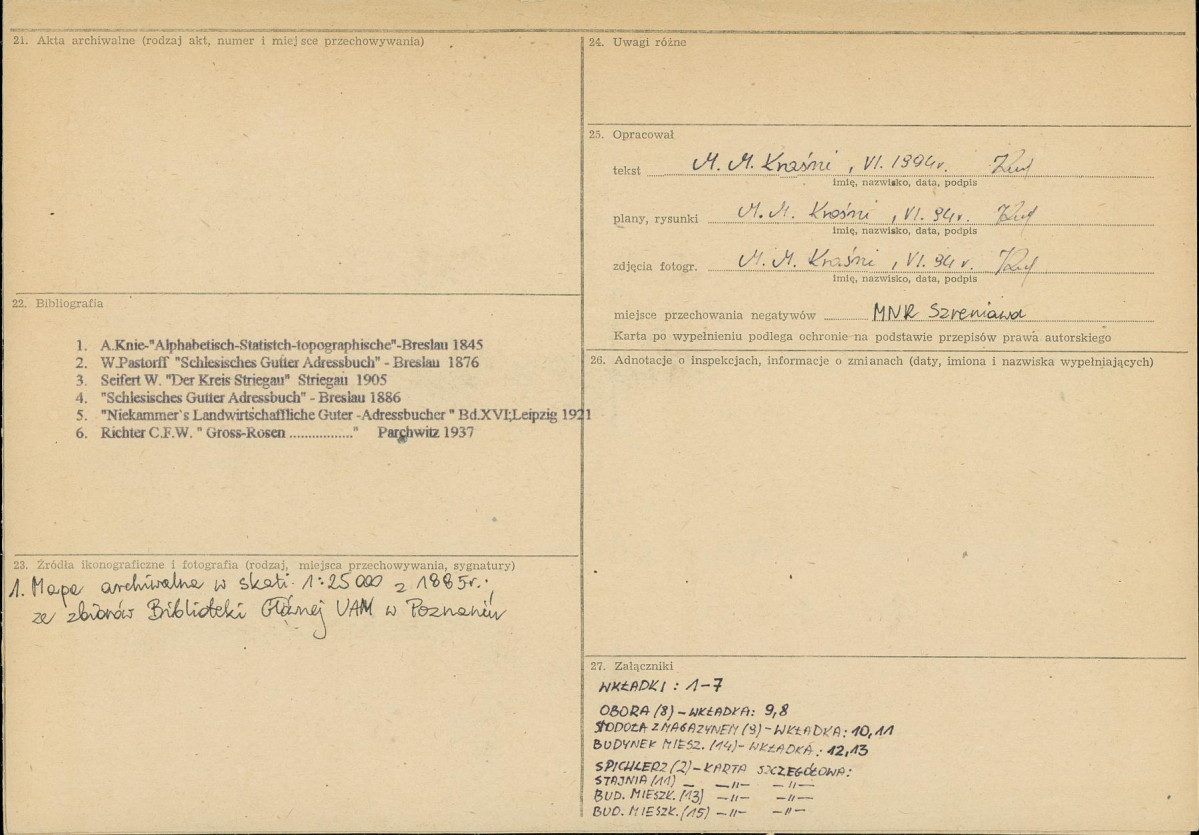 21. Akta archiwalne (rodzaj akt, numer i miejsce przechowywania)
22. Bibliografia
1. A.Knie-"Alphabetisch-Statistch-topographische"-Breslau 1845
2. W.Pastorff "Schlesisches Gutter Adressbuch" - Breslau 1876
3. Seifert W. "Der Kreis Striegau" Striegau 1905
4. "Schlesisches Gutter Adressbuch" - Breslau 1886
5. "Niekammer`s Landwirtschaffliche Guter -Adressbucher " Bd.XVI;Leipzig 1921
6. Richter C.F.W. " Gross-Rosen .................." Parchwitz 1937
23. Źródła ikonograficzne i fotografia (rodzaj, miejsca przechowywania, sygnatury)
1. Mapa archiwalna w skali 1:25 000 z 1885r.;
ze zbiorów Biblioteki Głównej UAM w Poznaniu
24. Uwagi różne
25. Opracował
tekst M. M. Kraśni , VI. 1994r.
imię, nazwisko, data, podpis
plany, rysunki M. M. Kraśni , VI. 94r.
imię, nazwisko, data, podpis
zdjęcia fotogr. M. M. Kraśni , VI. 94 r.
imię, nazwisko, data, podpis
miejsce przechowania negatywów MNR Szreniawa
Karta po wypełnieniu podlega ochronie na podstawie przepisów prawa autorskiego
26. Adnotacje o inspekcjach, informacje o zmianach (daty, imiona i nazwiska wypełniających)
27. Załączniki
WKŁADKI : 1-7
OBORA (8) - WKŁADKA: 9,8
STODOŁA Z MAGAZYNEM (9) - WKŁADKA: 10,11
BUDYNEK MIESZ. (14) - WKŁADKA : 12,13
SPICHLERZ (2) - KARTA SZCZEGÓŁOWA:
STAJNIA (11) - -„- -„-
BUD. MIESZK. (13) -„- -„-
BUD. MIESZK. (15) -„- -„-